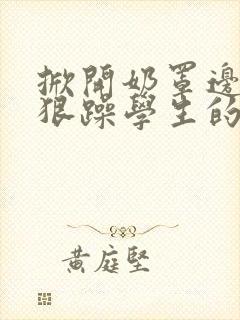 掀開奶罩邊
狠躁學生的
黃庭堅